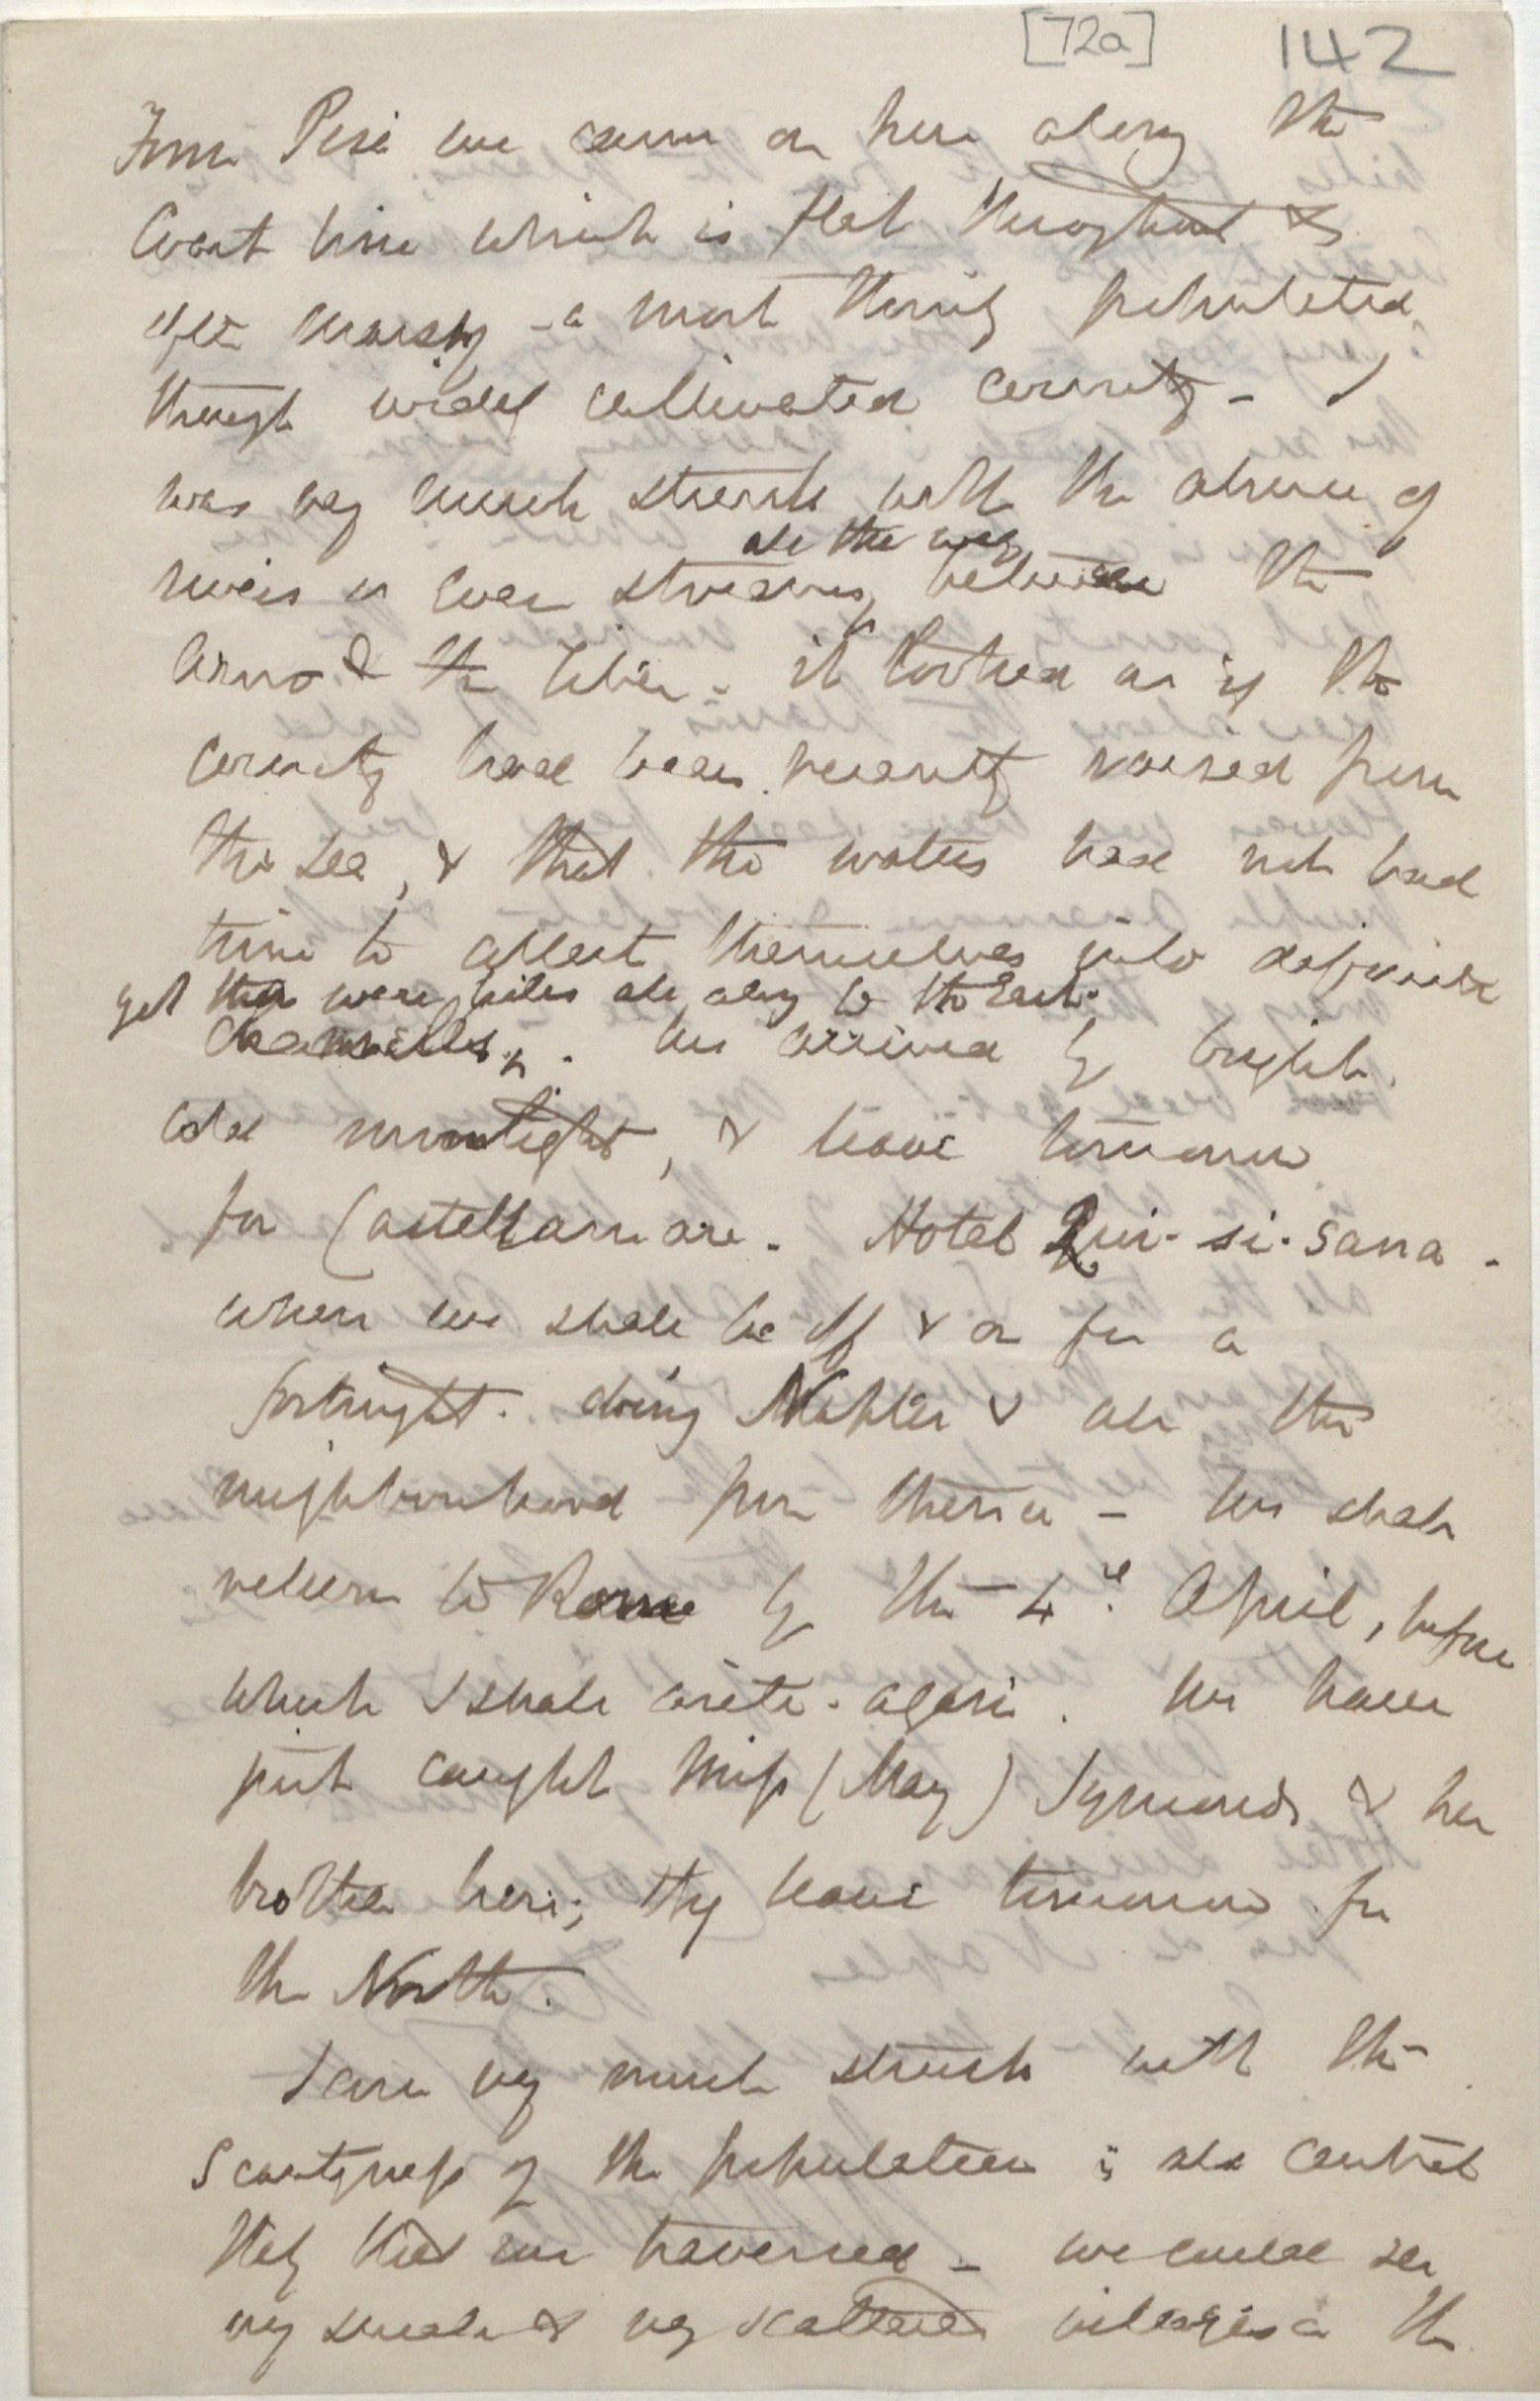 [72a] 142
From Pisa we came on here along the
Coast line which is flat throughout &
often marshy – a most thinly populated
though widely cultivated country – I
was very much struck with the absence of
rivers or even streams, all the way between the
Arno & the Tiber – it looked as if the
country had been recently raised from
the sea, & that the waters had not had
time to collect themselves into definite
yet there were hills all along to the East.
channels. We arrived by bright
cold moonlight, & leave tomorrow
for Castellammare. Hotel Qui-si-sana.
where we shall be off & on for a
fortnight. doing Naples & all the
neighbourhood from thence – We shall
return to Rome by the 4th April, before
which I shall write again. We have
just caught Miss (May) Symonds & her
brother here; they leave tomorrow for
the North.
I am very much struck with the
Scantyness of the population in all central
Italy that we traversed – we could see
very small & very scattered villages in the